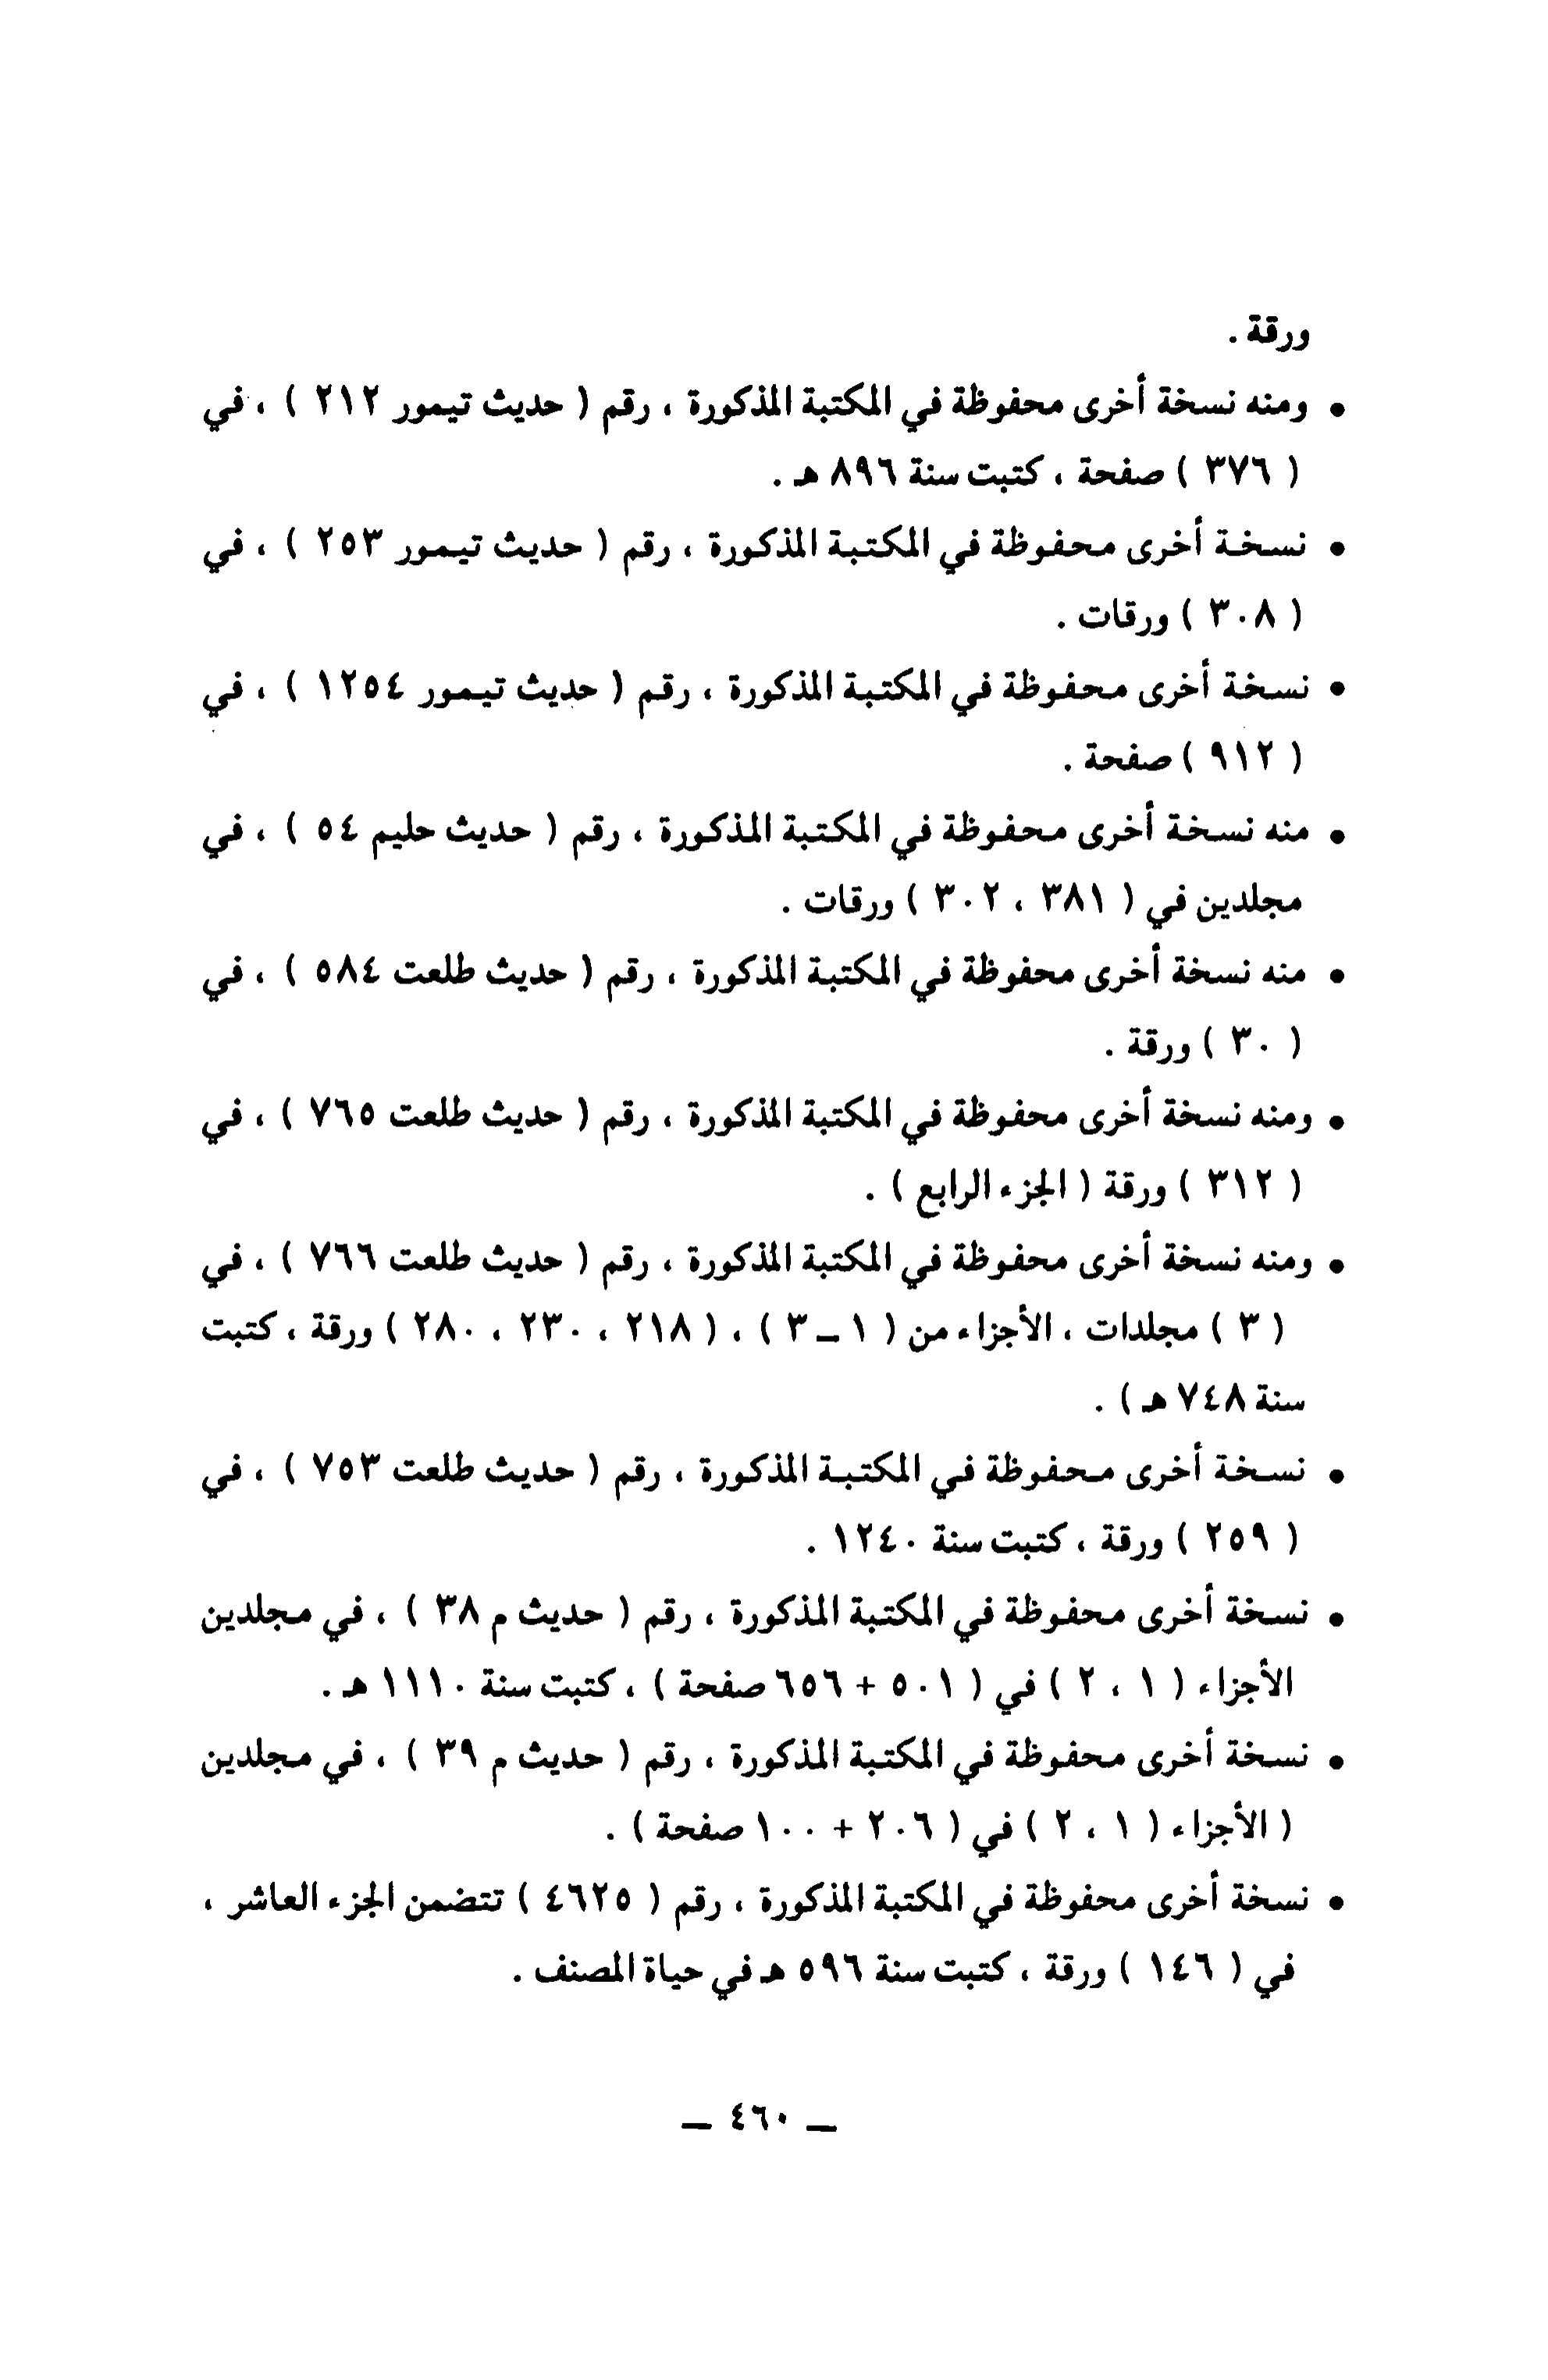 ورقة .
● ومنه نسخة أخرى محفوظة في المكتبة المذكورة ، رقم ( حديث تيمور ٢١٢ ) ، في
( ٣٧٦ ) صفحة ، كتبت سنة ٨٩٦ هـ .
● نسخة أخرى محفوظة في المكتبة المذكورة ، رقم ( حديث تيمور ٢٥٣ ) ، في
( ٣٠٨ ) ورقات .
● نسخة أخرى محفوظة في المكتبة المذكورة ، رقم ( حديث تيمور ١٢٥٤ ) ، في
( ٩١٢ ) صفحة .
● منه نسخة أخرى محفوظة في المكتبة المذكورة ، رقم ( حديث حليم ٥٤ ) ، في
مجلدين في ( ٣٨١ ، ٣٠٢ ) ورقات .
● منه نسخة أخرى محفوظة في المكتبة المذكورة ، رقم ( حديث طلعت ٥٨٤ ) ، في
( ٣٠ ) ورقة .
● ومنه نسخة أخرى محفوظة في المكتبة المذكورة ، رقم ( حديث طلعت ٧٦٥ ) ، في
( ٣١٢ ) ورقة ( الجزء الرابع ) .
● ومنه نسخة أخرى محفوظة في المكتبة المذكورة ، رقم ( حديث طلعت ٧٦٦ ) ، في
( ٣ ) مجلدات ، الأجزاء من ( ١ ـ ٣ ) ، ( ٢١٨ ، ٢٣٠ ، ٢٨٠ ) ورقة ، كتبت
سنة ٧٤٨ هـ ) .
● نسخة أخرى محفوظة في المكتبة المذكورة ، رقم ( حديث طلعت ٧٥٣ ) ، في
( ٢٥٩ ) ورقة ، كتبت سنة ١٢٤٠ .
● نسخة أخرى محفوظة في المكتبة المذكورة ، رقم ( حديث م ٣٨ ) ، في مجلدين
الأجزاء ( ١ ، ٢ ) في ( ٥٠١ + ٦٥٦ صفحة ) ، كتبت سنة ١١١٠ هـ .
● نسخة أخرى محفوظة في المكتبة المذكورة ، رقم ( حديث م ٣٩ ) ، في مجلدين
( الأجزاء ( ١ ، ٢ ) في ( ٢٠٦ + ١٠٠ صفحة ) .
● نسخة أخرى محفوظة في المكتبة المذكورة ، رقم ( ٤٦٢٥ ) تتضمن الجزء العاشر ،
في ( ١٤٦ ) ورقة ، كتبت سنة ٥٩٦ هـ في حياة المصنف .
ـ ٤٦٠ ـ